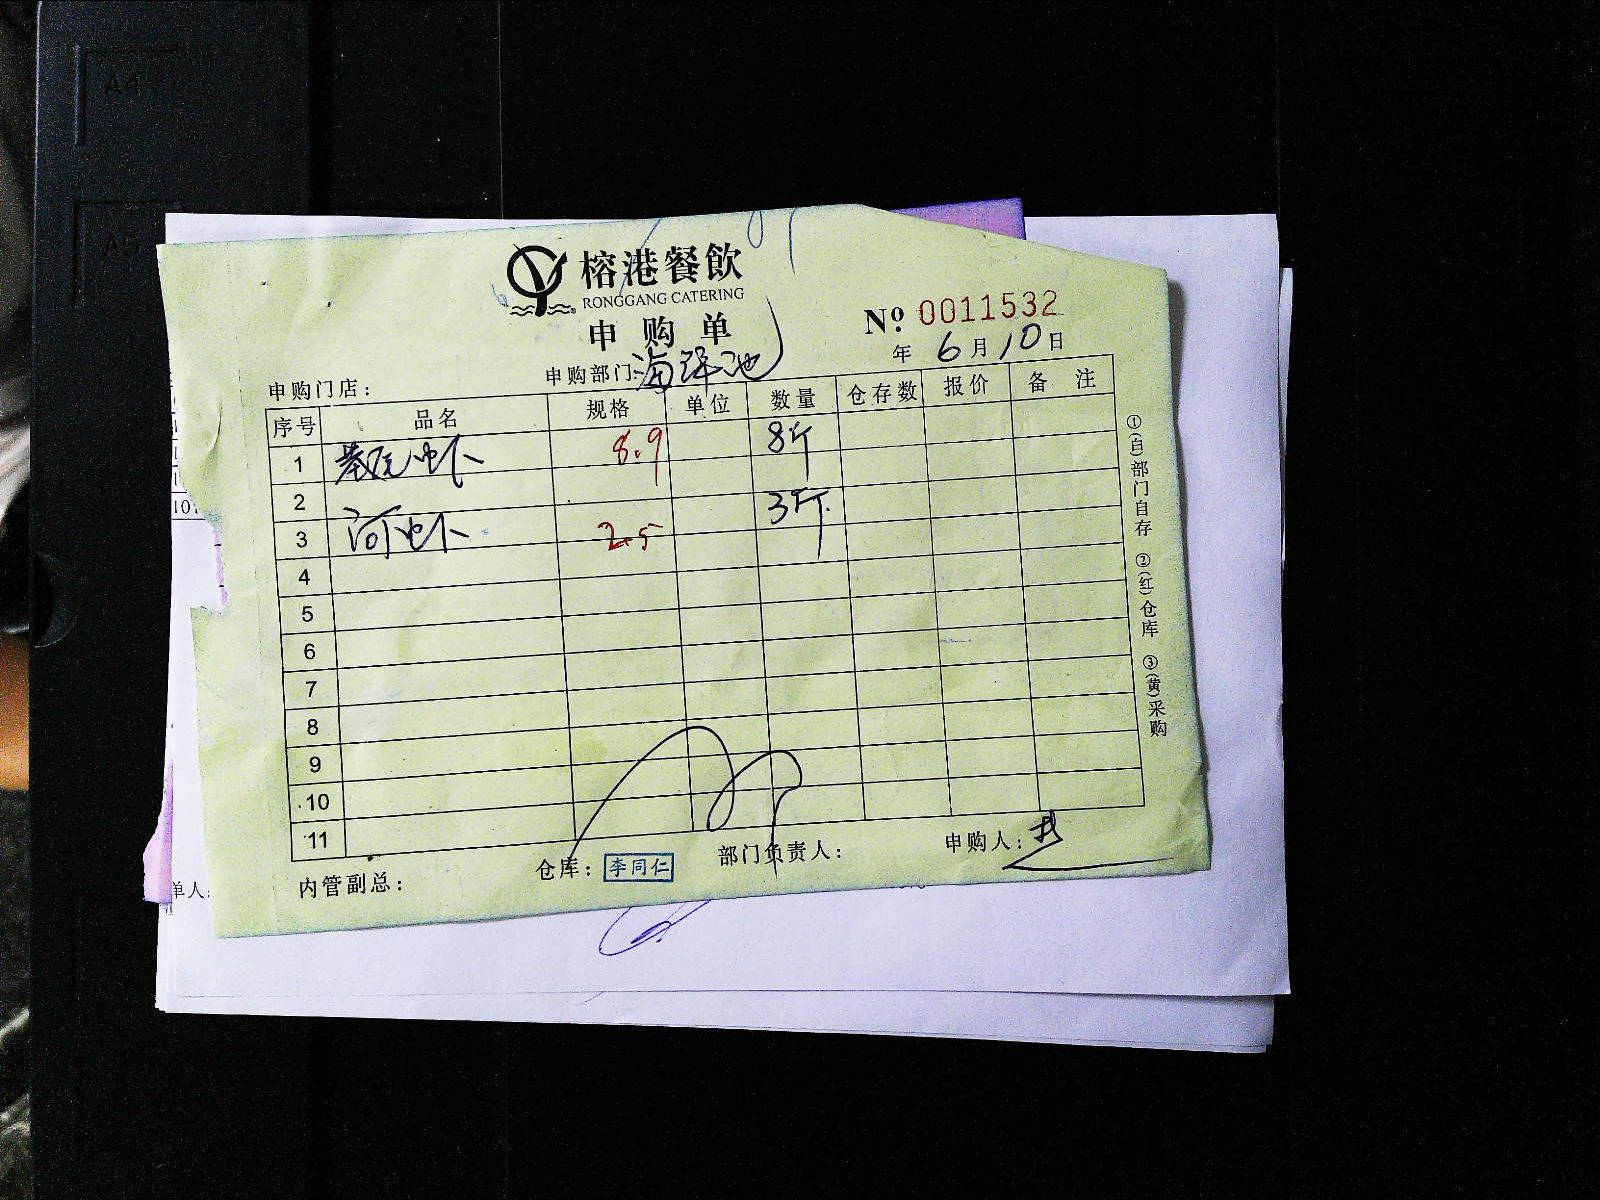 A4
A5
榕港餐飲
RONGGANG CATERING
申购单
№ 0011532
年 6 月 10 日
申购门店：
申购部门：海鲜池
序号 品名 规格 单位 数量 仓存数 报价 备注
1 基围虾 8.9 8斤
2
3 河虾 2.5 3斤
4
5
6
7
8
9
10
11
内管副总：
仓库：李同仁
部门负责人：
申购人：
①(白)部门自存 ②(红)仓库 ③(黄)采购
10:
单人: